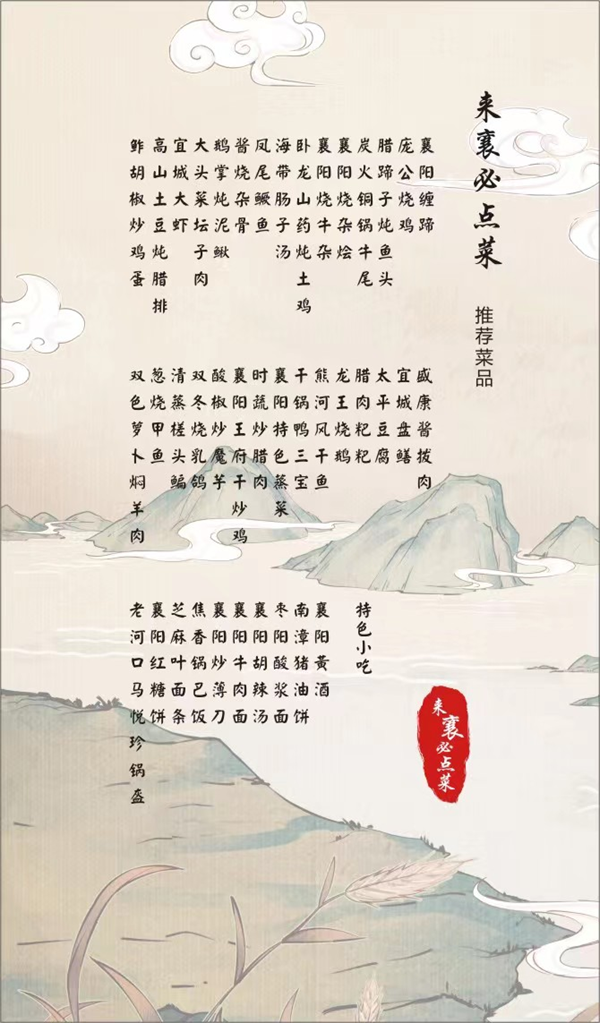 来襄必点菜
推荐菜品
襄阳缠蹄
庞公烧鸡
腊蹄子炖鱼头
炭火铜锅牛尾
襄阳烧杂烩
襄阳烧牛杂
卧龙山药炖土鸡
海带肠子汤
凤尾鳜鱼
酱烧杂骨
鹅掌炖泥鳅
大头菜坛子肉
宜城大虾
高山土豆炖腊排
鲊胡椒炒鸡蛋
盛康酱拨肉
宜城盘鳝
太平豆腐
腊肉粑粑
龙王烧鹅
熊河风干鱼
干锅鸭三宝
襄阳特色蒸菜
时蔬炒腊肉
襄阳王府干炒鸡
酸椒炒魔芋
双冬烧乳鸽
清蒸槎头鳊
葱烧甲鱼
双色萝卜焖羊肉
特色小吃
襄阳黄酒
南漳猪油饼
枣阳酸浆面
襄阳胡辣汤
襄阳牛肉面
襄阳炒薄刀
焦香锅巴饭
芝麻叶面条
襄阳红糖饼
老河口马悦珍锅盔
来襄必点菜